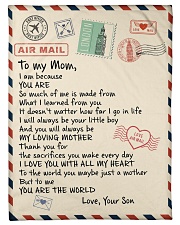 AIR MAIL
LONDON
To my Mom,
I am because
YOU ARE
So much of me is made from
What I learned from you
It doesn't matter how far I go in life
I will always be your little boy
And you will always be
MY LOVING MOTHER
Thank you for
the sacrifices you make every day
I LOVE YOU WITH ALL MY HEART
To the world you maybe just a mother
But to me
YOU ARE THE WORLD
Love, Your Son